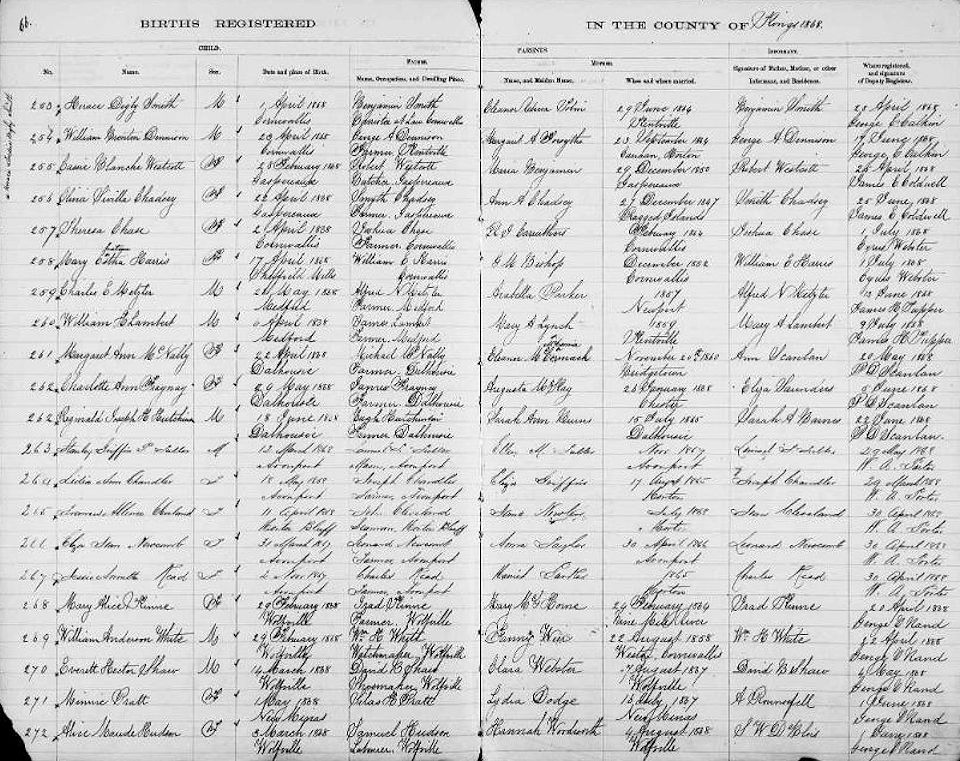 66.
BIRTHS REGISTERED IN THE COUNTY OF Kings 1868.
CHILD. PARENTS
FATHER. MOTHER. INFORMANT.
No. Name. Sex. Date and place of Birth. Name, Occupation, and Dwelling Place. Name, and Maiden Name. When and where married. Signature of Father, Mother, or other Informant, and Residence. Where registered, and signature of Deputy Registrar.
253 Horace Digby Smith M 1 April 1868 Benjamin Smith Eleanor 29 June 1864 Benjamin Smith 25 April 1868
Cornwallis Barrister at Law Cornwallis Kentville George E Calkin
254 William Dennison M 29 April 1868 George A Dennison Margaret A Forsythe 23 September 1864 George A Dennison
Cornwallis Farmer Kentville Canaan, Horton George E Calkin
255 Blanche Westcott F 28 February 1868 Robert Westcott Maria Benjamin 29 December 1850 Robert Westcott 25 April 1868
Gaspereaux Butcher Gaspereaux Gaspereaux James E Coldwell
256 Chadsey F 22 April 1868 Smyth Chadsey Ann A Chadsey 27 December 1847 Smith Chadsey 25 June 1868
Gaspereaux Farmer Gaspereaux Ragged Islands James E Coldwell
257 Theresa Chase F 2 April 1868 Joshua Chase February 1864 Joshua Chase 1 July 1868
Cornwallis Farmer Cornwallis Cornwallis Cyrus Webster
258 Mary Harris F 17 April 1868 William E Harris G M Bishop December 1852 William E Harris 1 July 1868
Sheffield Mills Cornwallis Cornwallis Cyrus Webster
259 Charles E Metzler M May 1868 Alfred N Metzler Arabella Parker 1857 Alfred N Metzler June 1868
Medford Farmer Medford Newport James H Tupper
260 William E Lambert M April 1868 James Lambert Mary A Lynch 1859 Mary A Lambert 9 July 1868
Medford Farmer Medford Kentville James H Tupper
261 Margaret Ann McNally F 22 April 1868 Michael McNally Eleanor McCormack November 20th 1860 Ann Scanlan 20 May 1868
Dalhousie Farmer Dalhousie Bridgetown P D Scanlan
262 Charlotte Ann F 29 May 1868 James Augusta McKay 26 January 1858 Eliza Saunders June 1868
Dalhousie Farmer Dalhousie Chester P D Scanlan
262 Reginald Joseph H Hutchinson M 8 June 1868 Hutchinson Sarah Ann 15 July 1865 Sarah A Barnes 22 June 1868
Dalhousie Farmer Dalhousie Dalhousie P D Scanlan
263 Stanley Griffin F M 12 March 1868 Ellen M. Nov 1867 29 May 1868
Avonport Avonport Avonport W. A. Porter
264 Lydia Ann Chandler F 18 May 1868 Joseph Chandler Eliza Griffin 17 August 1865 Joseph Chandler 29 April 1868
Avonport Farmer, Avonport Horton W. A. Porter
265 Cleveland F 11 April 1868 John Cleveland July 1858 Cleveland 30 April 1868
Horton Bluff Seaman Horton Bluff W. A. Porter
266 Eliza Jean Newcomb F 31 March 1867 Leonard Newcomb Anna Taylor 30 April 1866 Leonard Newcomb 30 April 1868
Avonport Farmer Avonport Avonport W. A. Porter
267 Jessie Read F 2 Nov 1867 Charles Read Harriet 1865 Charles Read 30 April 1868
Avonport Farmer, Avonport Horton W. A. Porter
268 Mary Alice Kinne F 29 February 1868 Kinne Mary McHorne 24 February 1864 Kinne 22 April 1868
Wolfville Farmer, Wolfville Nine Mile River George V Rand
269 William Anderson White M 29 February 1868 Wm H White Fanny Weir 22 August 1858 Wm H White 22 April 1868
Wolfville Watchmaker, Wolfville Weston Cornwallis George V Rand
270 Everett Hector Shaw M 14 March 1868 David B Shaw Clara Webster 7 August 1867 David B Shaw May 1868
Wolfville Shoemaker Wolfville Wolfville George V Rand
271 Minnie Pratt F May 1868 Silas H Pratt Lydia Dodge 15 July 1857 A Rounsefell 19 June 1868
New Minas New Minas George V Rand
272 Alice Maude Hudson F 8 March 1868 Samuel Hudson Hannah Woodworth 4 August 1858 S W DeBlois
Wolfville Laborer, Wolfville Wolfville George V Rand